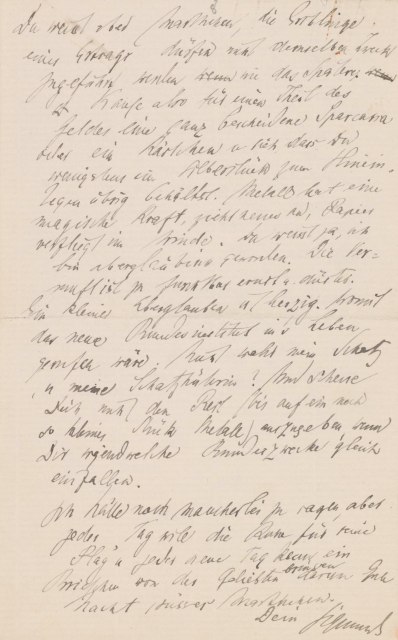 Du weist aber Marthchen, die Erstlinge
eines Ertrags dürfen nicht demselben Zweck
zugeführt werden wenn wie das spätere.
Kaufe also für einen Theil des
Geldes eine ganz bescheidene Sparcassa
oder ein Kästchen u sieh dass Du
wenigstens ein Silberstück zum Hinein-
legen übrig behältst. Metall hat eine
magische Kraft, zieht neues an, Papier
verfliegt im Winde. Du weist ja, ich
bin abergläubisch geworden. Die Ver-
nunft ist ja furchtbar ernst u düster.
Ein kleiner Aberglauben ist herzig. Womit
das neue Bundesinstitut ins Leben
gerufen wäre. Nicht wahr mein Schatz
u meine Schatzhüterin? Und scheue
Dich nicht den Rest bis auf ein noch
so kleines Stück Metall auszugeben wenn
Dir irgendwelche Bundeszwecke gleich
einfallen.
Ich hätte noch mancherlei zu sagen aber
jedes Tag will die Ruhe für seine
Plag' u jeder neue Tag kann ein
von der Geliebten bringen darum Gute
Nacht süsses Marthchen.
Dein Sigmund